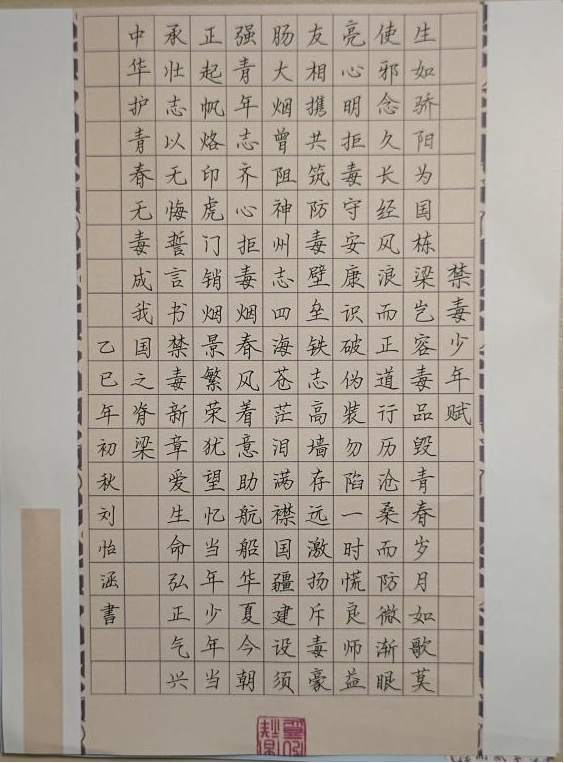 禁毒少年赋
生如骄阳为国栋梁岂容毒品毁青春岁月如歌莫
使邪念久长经风浪而正道行历沧桑而防微渐眼
亮心明拒毒守安康识破伪装勿陷一时慌良师益
友相携共筑防毒壁垒铁志高墙存远激扬斥毒豪
肠大烟曾阻神州志四海苍茫泪满襟国疆建设须
强青年志齐心拒毒烟春风着意助航船华夏今朝
正起帆烙印虎门销烟景繁荣犹望忆当年少年当
承壮志以无悔誓言书禁毒新章爱生命弘正气兴
中华护青春无毒成我国之脊梁
乙巳年初秋刘怡涵書